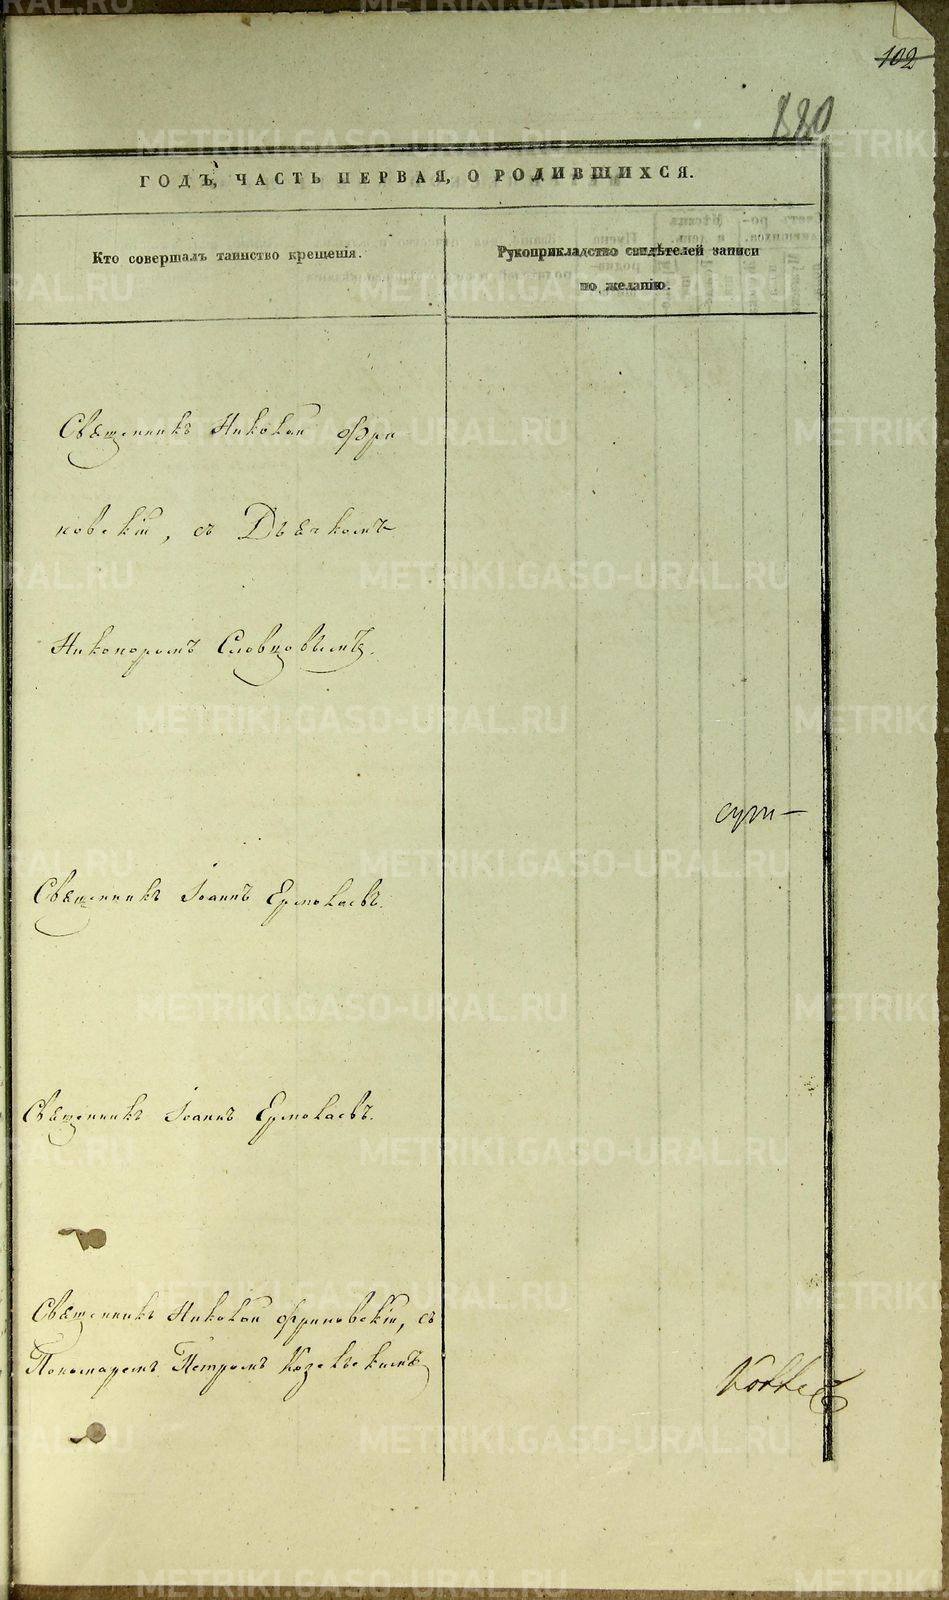 102
880
ГОДЪ, ЧАСТЬ ПЕРВАЯ, О РОДИВШИХСЯ.
Кто совершалъ таинство крещенія.
Рукоприкладство свидѣтелей записи
по желанію.
Священникъ Николай Фри
новскій, съ Дьячкомъ
Никаноромъ Словцовымъ.
Священникъ Іоаннъ Ермолаевъ.
Священникъ Іоаннъ Ермолаевъ.
Священникъ Николай Фриновскій, съ
Пономаремъ Петромъ
METRIKI.GASO-URAL.RU